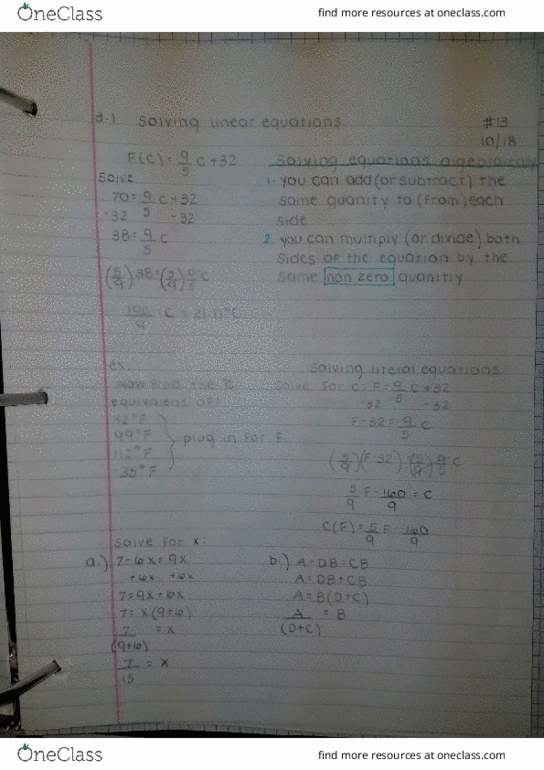 OneClass find more resources at oneclass.com
3.1 Solving linear equations #13
10/18
F(C) = 9/5 C + 32
Solve
70 = 9/5 C + 32
-32 -32
38 = 9/5 C
(5/9) 38 = (5/9) 9/5 C
190/9 = C = 21.11°C
Solving equations algebraically
1. you can add (or subtract) the
same quanity to (from) each
side
2. you can multiply (or divide) both
sides of the equation by the
same non zero quanitiy
Ex.
now find the °C
equivalent of:
42°F
99°F
-35°F
plug in for F
Solving literal equations
Solve for C: F = 9/5 C + 32
-32 -32
F - 32 = 9/5 C
(5/9)(F-32) (5/9) 9/5 C
5/9 F - 160/9 = C
C(F) = 5/9 F - 160/9
Solve for x:
a.) 7 - 6x = 9x
+6x +6x
7 = 9x + 6x
7 = x(9+6)
7/(9+6) = x
7/15 = x
b.) A - DB = CB
A = DB + CB
A = B(D+C)
A/(D+C) = B
OneClass find more resources at oneclass.com